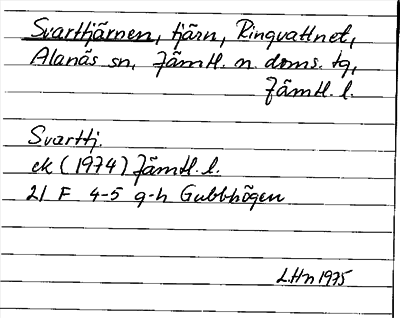 Svarttjärnen, tjärn, Ringvattnet,
Alanäs sn, Jämtl. n. doms. tg,
Jämtl. l.
Svarttj.
ek (1974) Jämtl. l.
21 F 4-5 g-h Gubbhögen
L.Hn 1975